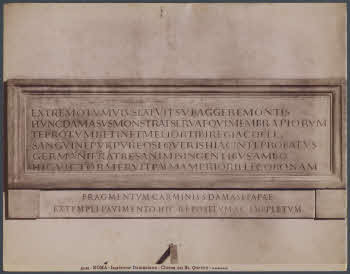 EXTREMO TVMVLVS LATVIT SVB AGGERE MONTIS
HVNC DAMASVS MONSTRAT SERVAT QVI MEMBRA PIORVM
TE PROTVM RETINET MELIOR TIBI REGIA COELI
SANGVINE PVRPVREO SEQVERIS HIACINTE PROBATVS
GERMANI FRATRES ANIMIS INGENTIBVS AMBO
HIC VICTOR MERVIT PALMAM PRIOR ILLE CORONAM
FRAGMENTVM CARMINIS S DAMASI PAPAE
EX TEMPLI PAVIMENTO HIC REPOSITVM AC EXPLETVM
ROMA - Inscrizione Damasiana - Chiesa dei Ss. Quattro